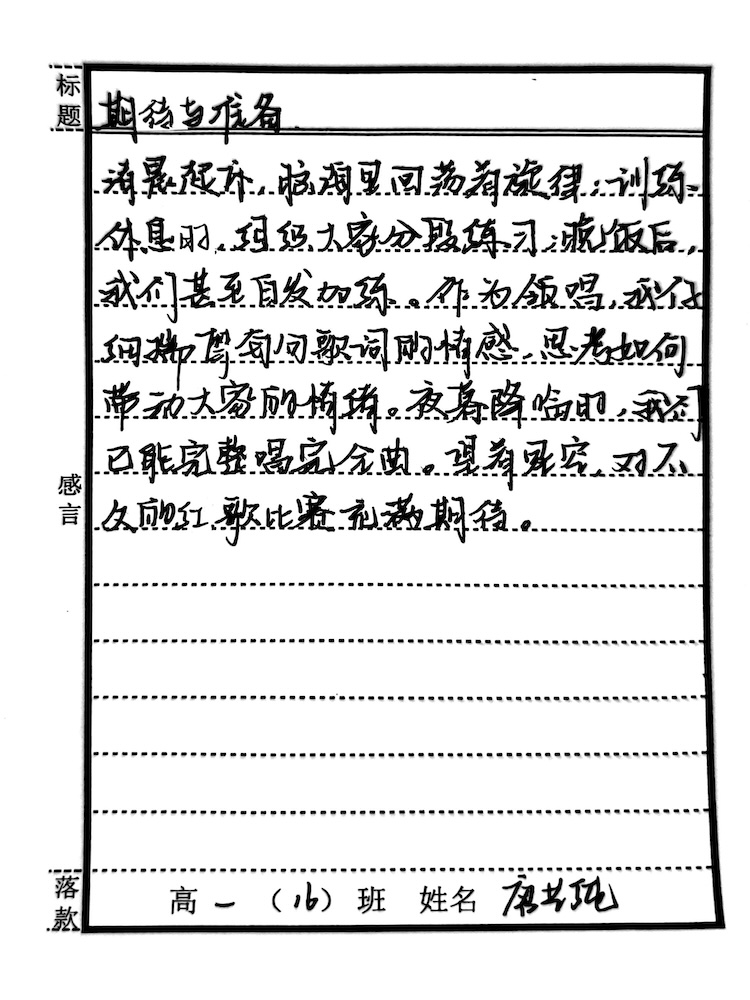 标题
期待与准备
清晨起床，脑海里回荡着旋律；训练
休息时，组织大家分段练习；晚饭后，
我们甚至自发加练。作为领唱，我仔
细揣摩每句歌词的情感，思考如何
带动大家的情绪。夜幕降临时，我们
已能完整唱完全曲。望着星空，对不
久的红歌比赛充满期待。
感言
落款
高一（16）班 姓名